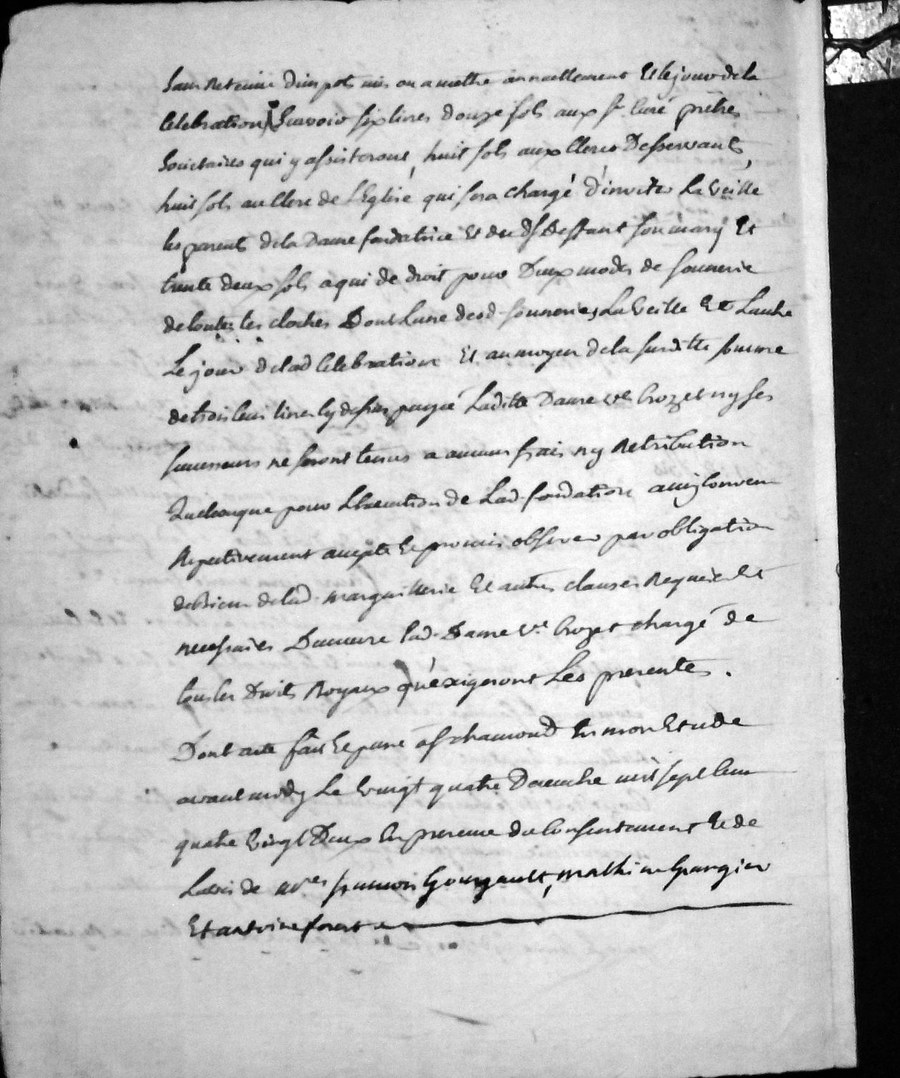 Sans Retenue d'impots mis ou a mettre annuellement Et le jour de la
Celebration, Savoir six livres douze sols aux Srs. Curé prêtres
Societaires qui y assisteront, huit sols aux Clercs Desservants,
huit sols au Clerc de L'Eglise qui sera chargé d'inviter La veille
les parents de la Dame fondatrice Et du dt. Deffunt son mary Et
trente deux sols a qui de droit pour Deux modes de sonnerie
de toutes les cloches Dont L'une desd. sonneries La veille Et L'autre
Le jour de lad Celebration Et au moyen de la susditte somme
de trois cens livres cy dessus payée Laditte Dame ve. Crozet ny ses
successeurs ne seront tenus a aucuns frais ny Retribution
Quelconque pour L'Execution de Lad. fondation ainsy Convenu
Respectivement accepté Et promis observer par obligation
des biens de lad. marguillerie Et autres clauses Requises Et
necessaires Demeure lad. Dame ve. Crozet chargé de
tous les Droits Royaux qu'exigeront Les presentes.
Dont acte fait Et passé a St chamond En mon Etude
avant midy Le vingt quatre Decembre mil sept cent
quatre vingt Deux En presence du Consentement Et de
L'avis de mres françois Gourgault, mathieu Grangier
Et antoine forest